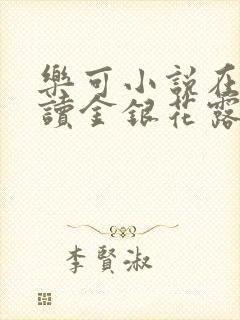 樂可小說在
讀金銀花露
李賢淑